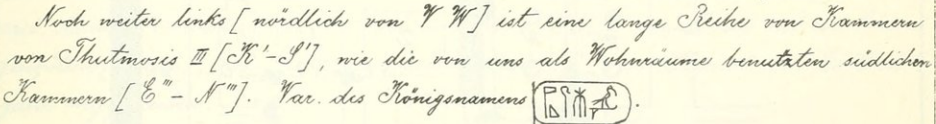 Noch weiter links [nördlich von V W] ist eine lange Reihe von Kammern
von Thutmosis III [K'-S'], wie die von uns als Wohnräume benutzten südlichen
Kammern [E'''- N''']. Var. des Königsnamens .